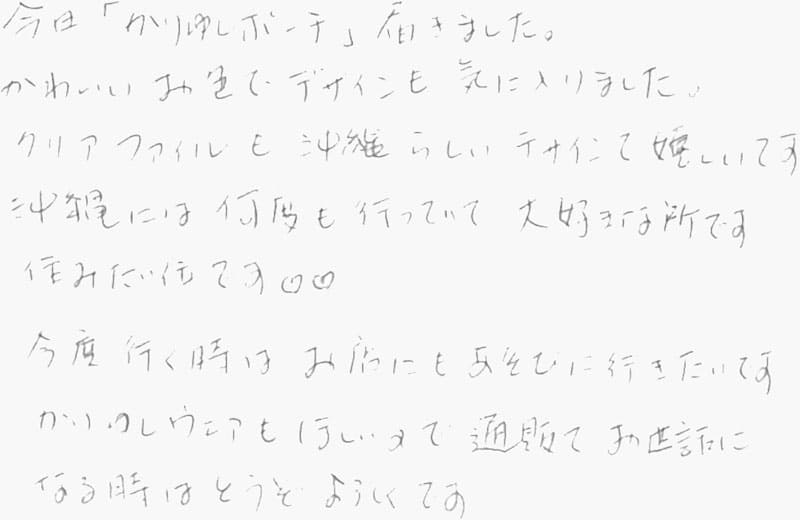 今日「かりゆしポーチ」届きました。
かわいいお色でデザインも気に入りました。
クリアファイルも沖縄らしいデサインで嬉しいです
沖縄には何度も行っていて大好きな所です
住みたい位です♡♡
今度行く時はお店にもあそびに行きたいです
かりゆしウェアもほしいので通販でお世話に
なる時はどうぞよろしくです